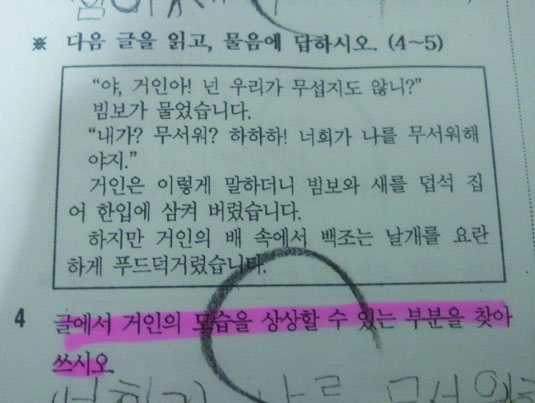 ※ 다음 글을 읽고, 물음에 답하시오. (4~5)
“야, 거인아! 넌 우리가 무섭지도 않니?”
빔보가 물었습니다.
“내가? 무서워? 하하하! 너희가 나를 무서워해
야지.”
거인은 이렇게 말하더니 빔보와 새를 덥석 집
어 한입에 삼켜 버렸습니다.
하지만 거인의 배 속에서 백조는 날개를 요란
하게 푸드덕거렸습니다.
4 글에서 거인의 모습을 상상할 수 있는 부분을 찾아
쓰시오